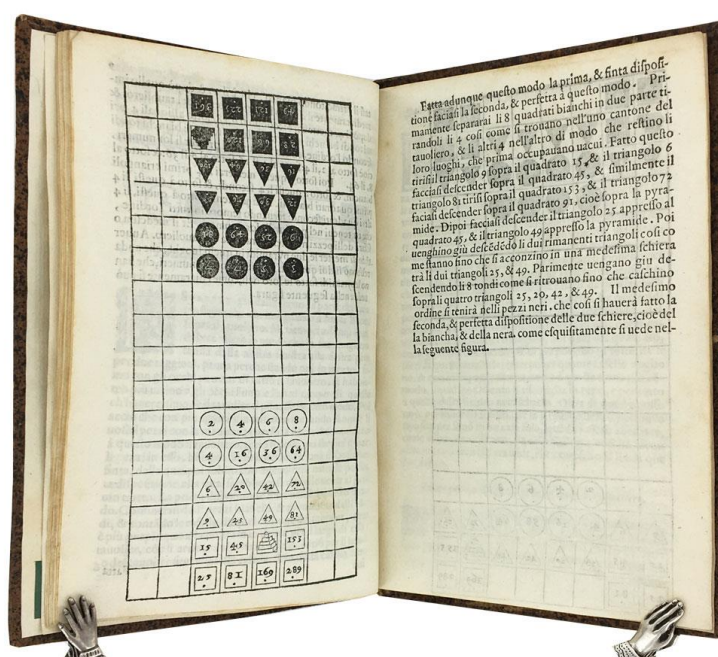 2 4 6 8
4 16 36 64
6 20 42 72
9 25 49 81
15 45 153
25 81 169 289
Fatta adunque questo modo la prima, & finta disposi-
tione faciasi la seconda, & perfetta à questo modo. Pri-
mamente separarai li 8 quadrati bianchi in due parte ti-
randoli li 4 cosi come si trouano nell'uno cantone del
tauoliero, & li altri 4 nell'altro di modo che restino li
loro luoghi, che prima occupauano uacui. Fatto questo
tirisi il triangolo 9 sopra il quadrato 15, & il triangolo 6
facciasi descender sopra il quadrato 45, & similmente il
triangolo 81 tirisi sopra il quadrato 153, & il triangolo 72
faciasi descender sopra il quadrato 91, cioè sopra la pyra-
mide. Dipoi facciasi descender il triangolo 25 appresso al
quadrato 45, & il triangolo 49 appresso la pyramide. Poi
uenghino giù descēdēdo li dui rimanenti triangoli cosi co
me stanno fino che si acconzino in una medesima schiera
trà li dui triangoli 25, & 49. Parimente uengano giu de-
scendendo li 8 tondi come si ritrouano fino che caschino
sopra li quatro triangoli 25, 20, 42, & 49. Il medesimo
ordine si tenirà nelli pezzi neri. che cosi si hauerà fatto la
seconda, & perfetta dispositione delle due schiere, cioè del
la biancha, & della nera. come esquisitamente si uede nel-
la seguente figura.